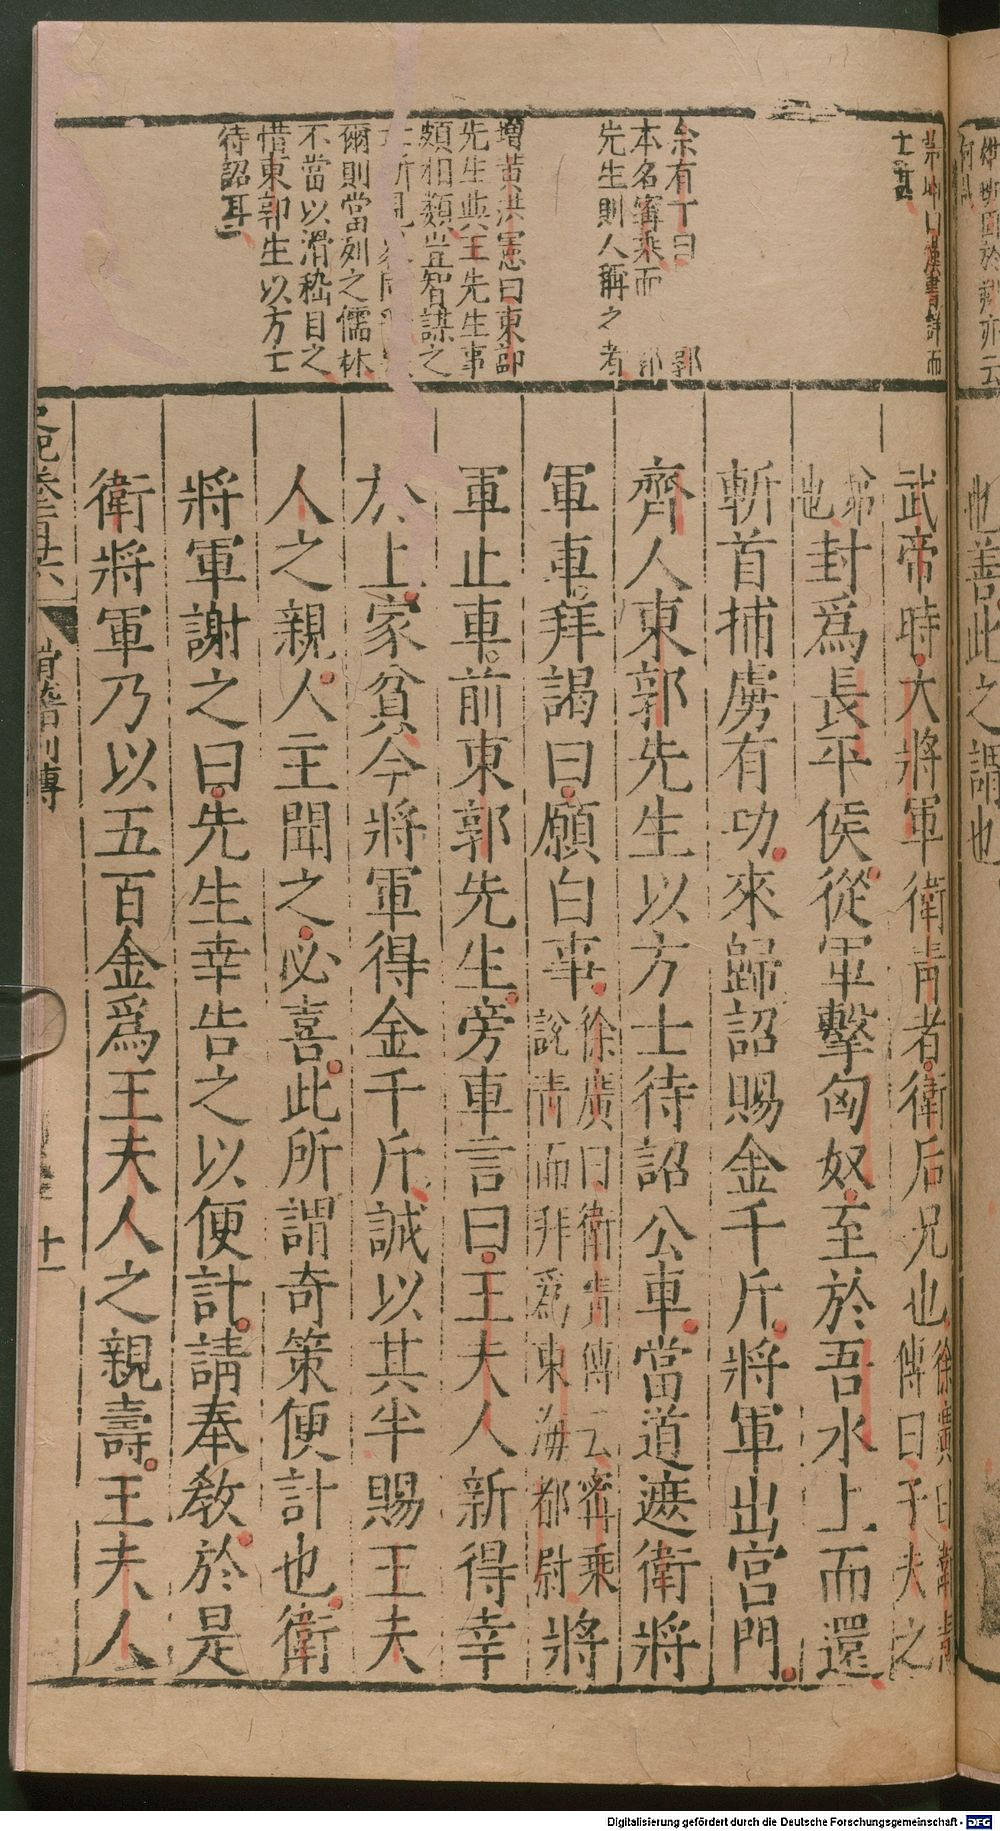 也善此之謂也
武帝時大將軍衛青者衛后兄也徐廣曰衛青傳曰子夫之
弟也封爲長平侯從軍擊匈奴至於吾水上而還
斬首捕虜有功來歸詔賜金千斤將軍出宮門
齊人東郭先生以方士待詔公車當道遮衛將
軍車拜謁曰願白事徐廣曰衛青傳云甯乘說青而拜爲東海都尉將
軍止車前東郭先生旁車言曰王夫人新得幸
於上家貧今將軍得金千斤誠以其半賜王夫
人之親人主聞之必喜此所謂奇策便計也衛
將軍謝之曰先生幸告之以便計請奉教於是
衛將軍乃以五百金爲王夫人之親壽王夫人
茅坤曰漢書詳而
余有丁曰 郭
本名甯乘而 郭
先生則人稱之者
增黃洪憲曰東郭
先生與王先生事
頗相類豈智謀之
士所見
爾則當列之儒林
不當以滑稽目之
惜東郭生以方士
待詔耳
史記卷百廿六
滑稽列傳
十一
Digitalisierung gefördert durch die Deutsche Forschungsgemeinschaft - DFG